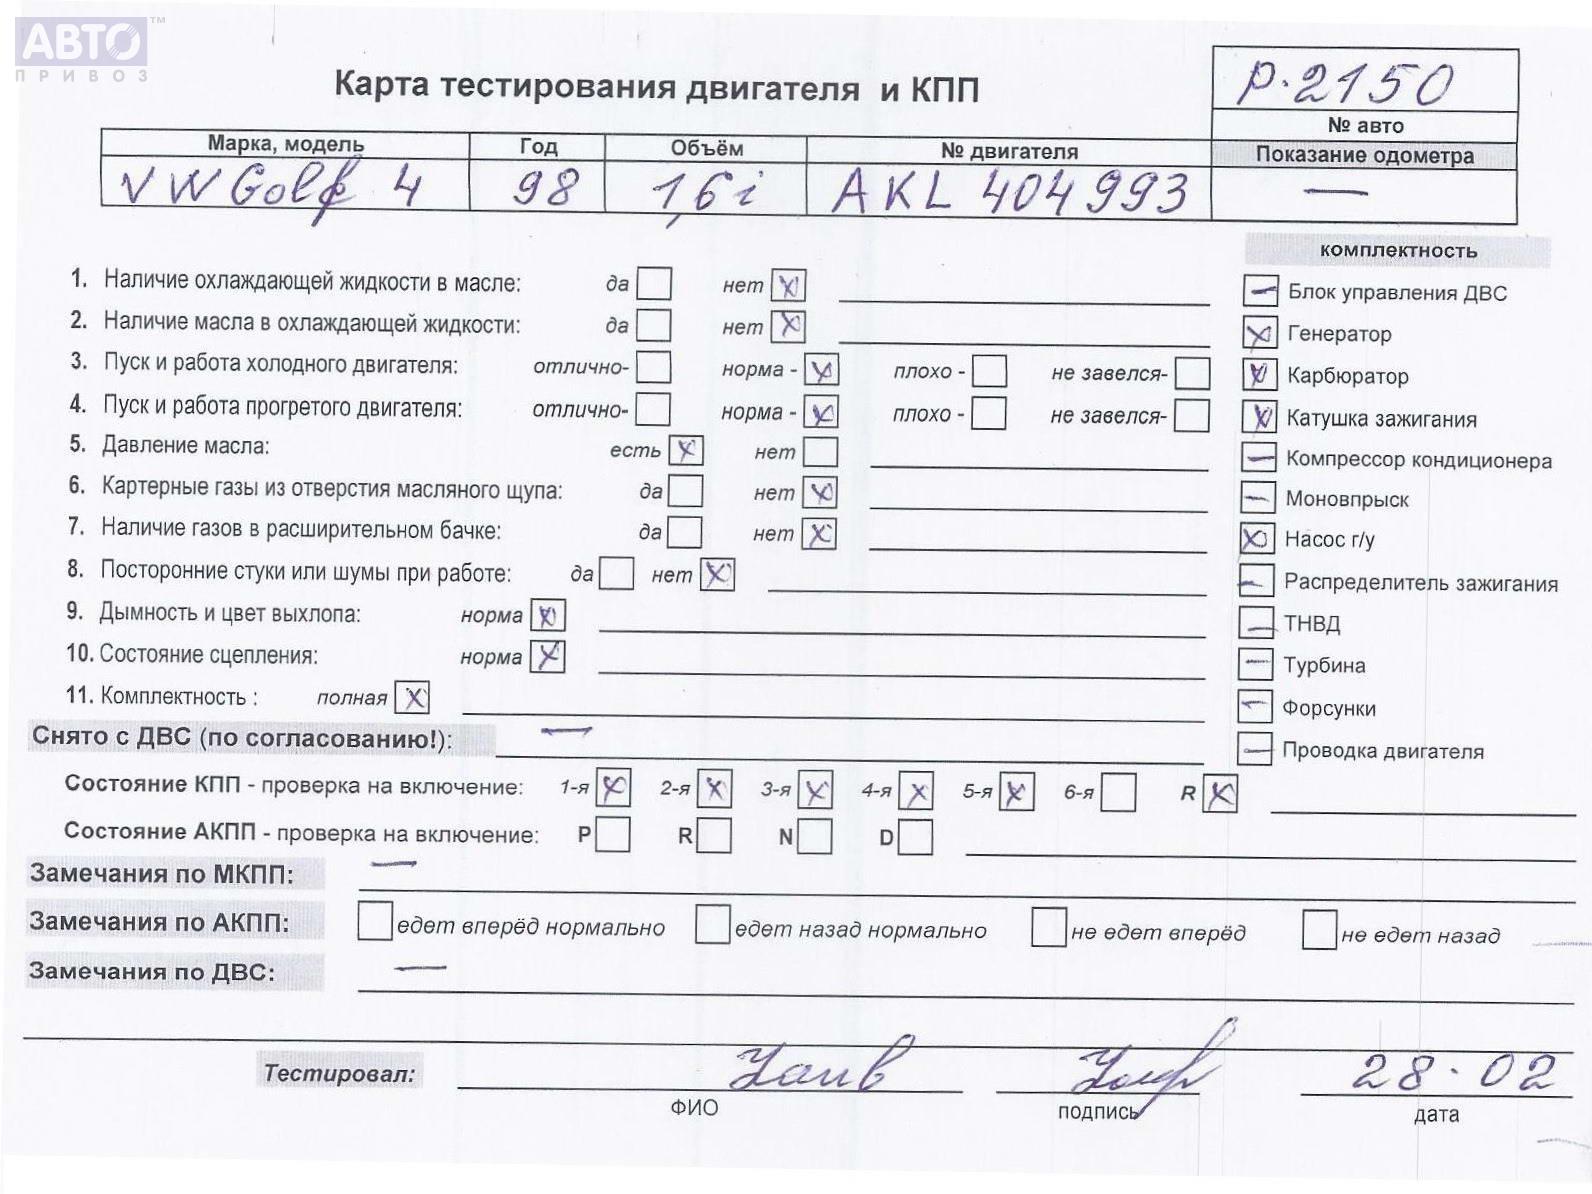 АВТО™
ПРИВОЗ
Карта тестирования двигателя и КПП
Р.2150
№ авто
Марка, модель Год Объём № двигателя Показание одометра
VW Golf 4 98 1,6i AKL 404993 —
комплектность
1. Наличие охлаждающей жидкости в масле: да нет X
2. Наличие масла в охлаждающей жидкости: да нет X
3. Пуск и работа холодного двигателя: отлично- норма - X плохо - не завелся-
4. Пуск и работа прогретого двигателя: отлично- норма - X плохо - не завелся-
5. Давление масла: есть X нет
6. Картерные газы из отверстия масляного щупа: да нет X
7. Наличие газов в расширительном бачке: да нет X
8. Посторонние стуки или шумы при работе: да нет X
9. Дымность и цвет выхлопа: норма X
10. Состояние сцепления: норма X
11. Комплектность : полная X
— Блок управления ДВС
X Генератор
X Карбюратор
X Катушка зажигания
— Компрессор кондиционера
— Моновпрыск
X Насос г/у
— Распределитель зажигания
— ТНВД
— Турбина
— Форсунки
— Проводка двигателя
Снято с ДВС (по согласованию!): —
Состояние КПП - проверка на включение: 1-я X 2-я X 3-я X 4-я X 5-я X 6-я R X
Состояние АКПП - проверка на включение: P R N D
Замечания по МКПП: —
Замечания по АКПП: едет вперёд нормально едет назад нормально не едет вперёд не едет назад
Замечания по ДВС: —
Тестировал: 28.02
ФИО подпись дата